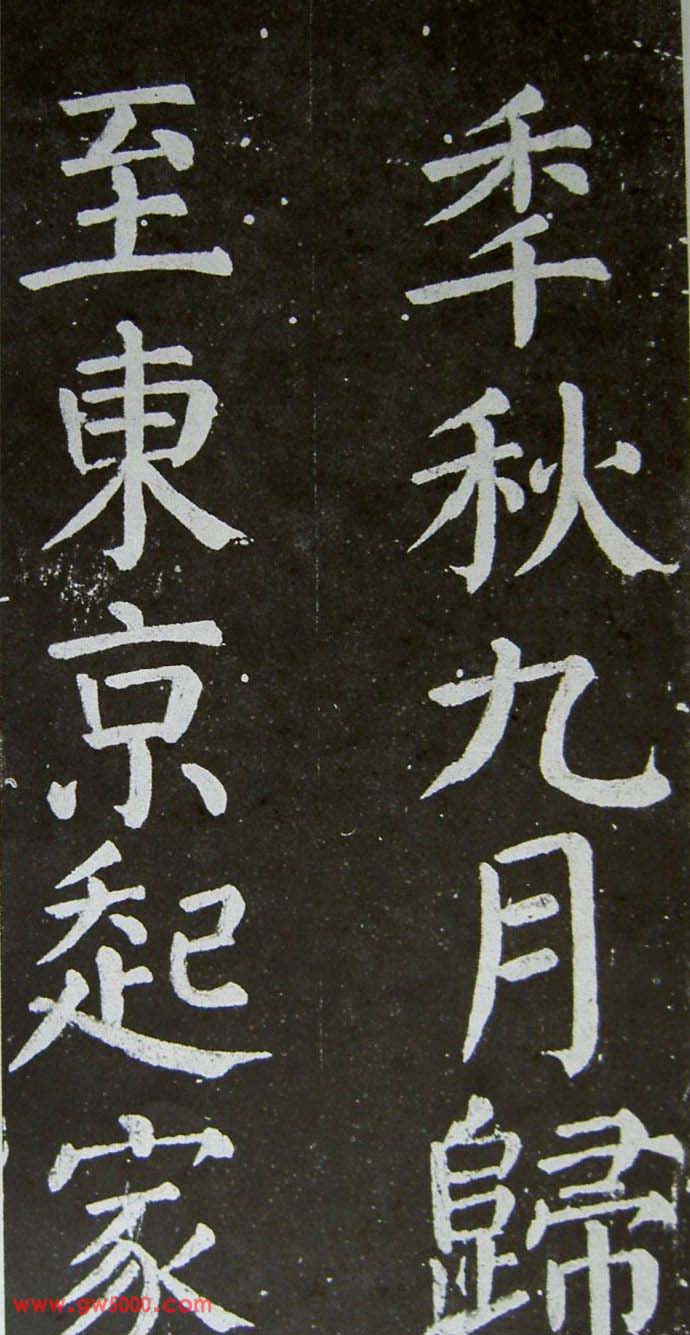 秊秋九月歸
至東京起家
www.gw5000.com